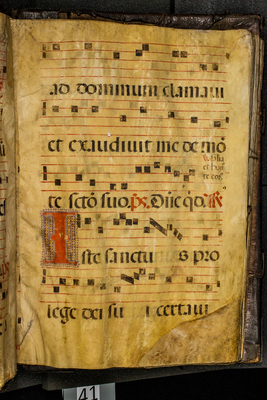 ad dominum clamaui
et exaudiuit me de mõ
te sctõ suo. ps. Dñe qd
Iste sanctu s pro
lege dei su i certaui
41